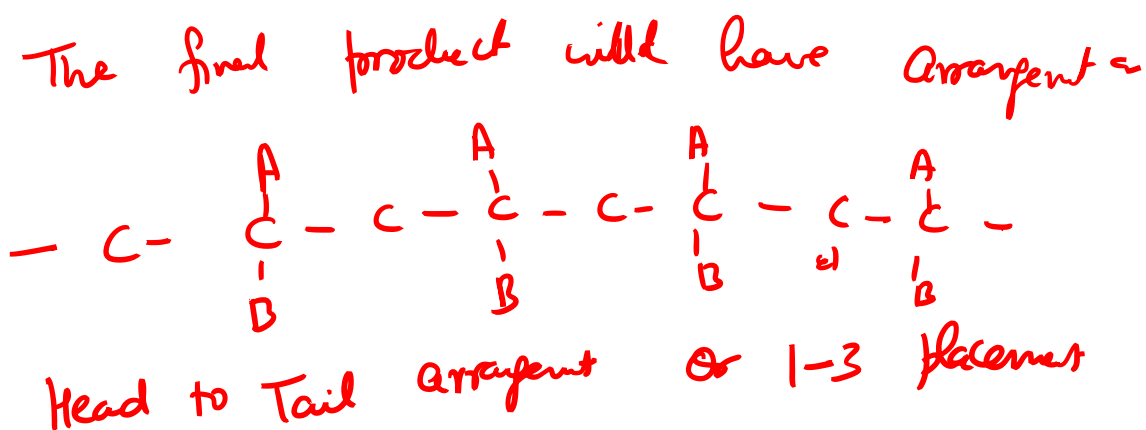 The final product willd have arrangent
A A A A
— C — C — C — C — C — C — C — C —
B B B B
Head to Tail arrangent or 1-3 placement